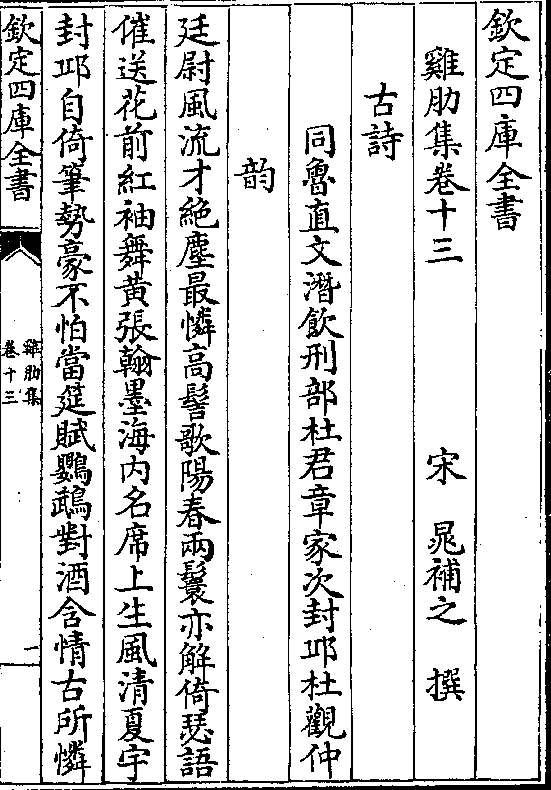 欽定四庫全書
雞肋集卷十三　宋　晁補之　撰
古詩
同魯直文潛飲刑部杜君章家次封邱杜觀仲
韵
廷尉風流才絶塵最憐高髻歌陽春兩鬟亦解倚瑟語
催送花前紅袖舞黃張翰墨海内名席上生風清夏宇
封邱自倚筆勢豪不怕當筵賦鸚鵡對酒含情古所憐
欽定四庫全書
雞肋集
卷十三
一